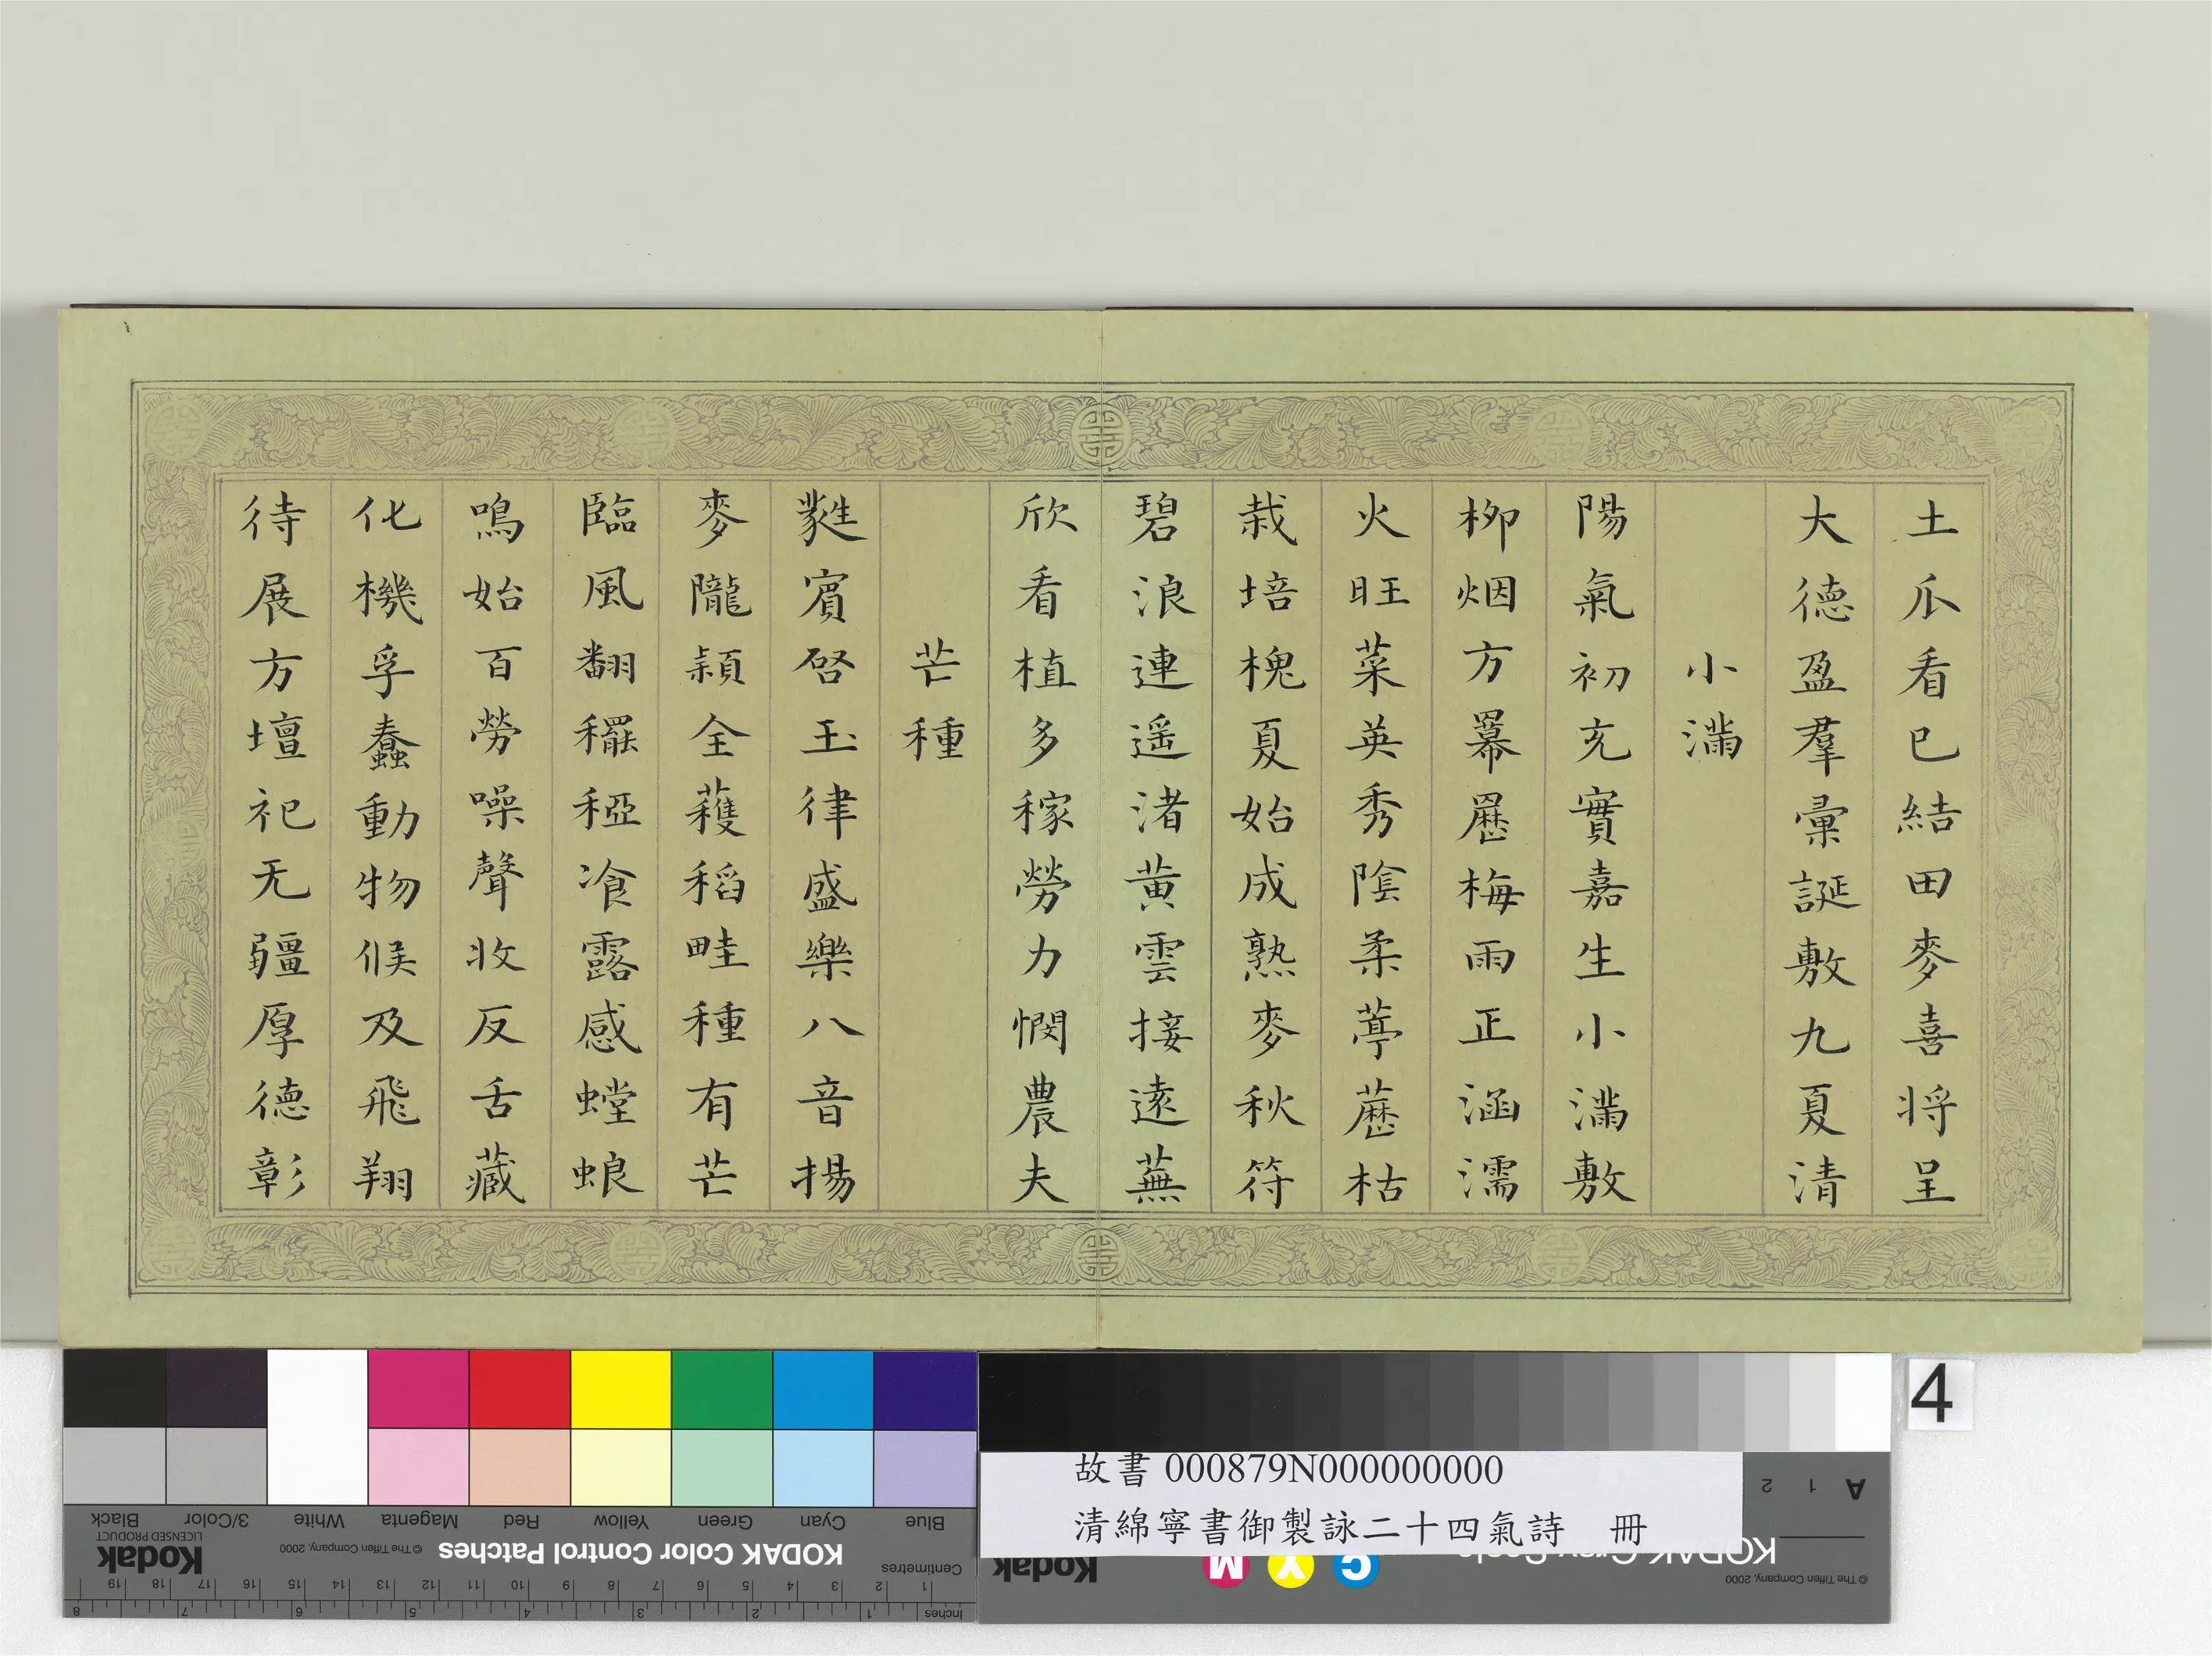 土瓜看已結田麥喜將呈
大德盈羣彙誕敷九夏清
小滿
陽氣初充實嘉生小滿敷
柳烟方羃䍥梅雨正涵濡
火旺菜英秀陰柔葶藶枯
栽培槐夏始成熟麥秋符
碧浪連遥渚黃雲接遠蕪
欣看植多稼勞力憫農夫
芒種
蕤賓啓玉律盛樂八音揚
麥隴穎全穫稻畦種有芒
臨風翻䆉稏飡露感螳蜋
鳴始百勞噪聲收反舌藏
化機孚蠢動物候及飛翔
待展方壇祀无疆厚德彰
4
故書 000879N000000000
清綿寧書御製詠二十四氣詩　冊
Blue Cyan Green Yellow Red Magenta White 3/Color Black
KODAK Color Control Patches
© The Tiffen Company, 2000
Kodak
LICENSED PRODUCT
Centimetres
1 2 3 4 5 6 7 8 9 10 11 12 13 14 15 16 17 18 19
Inches
1 2 3 4 5 6 7 8
A 1 2
KODAK Gray Scale
C Y M
Kodak
© The Tiffen Company, 2000